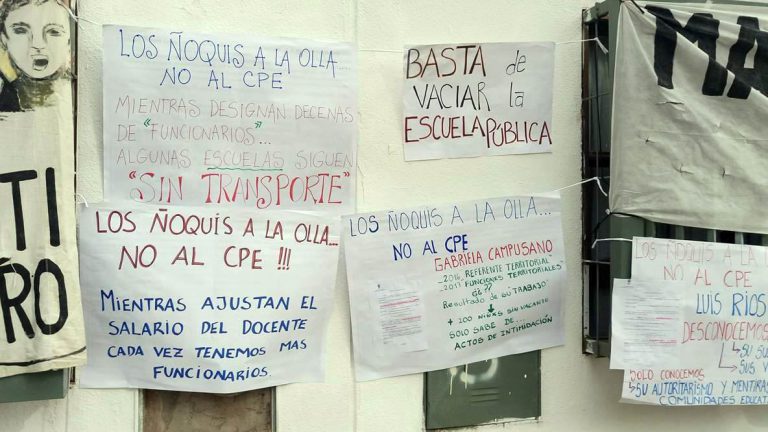 LOS ÑOQUIS A LA OLLA....
NO AL CPE
MIENTRAS DESIGNAN DECENAS
DE "FUNCIONARIOS"...
ALGUNAS ESCUELAS SIGUEN
"SIN TRANSPORTE"
BASTA de
VACIAR la
ESCUELA PÚBLICA
MA
TI
RO
LOS ÑOQUIS A LA OLLA...
NO AL CPE !!!
MIENTRAS AJUSTAN EL
SALARIO DEL DOCENTE
CADA VEZ TENEMOS MAS
FUNCIONARIOS.
LOS ÑOQUIS A LA OLLA...
NO AL CPE
GABRIELA CAMPUSANO
_2016, REFERENTE TERRITORIAL"
_2017 FUNCIONES TERRITORIALES"
Resultado de SU "TRABAJO"
+ 200 NIÑXS SIN VACANTE
SOLO SABE DE...
ACTOS DE INTIMIDACIÓN
LOS ÑOQUIS A LA OLLA
NO AL CPE
LUIS RIOS
DESCONOCEMOS
SU
SUS
SOLO CONOCEMOS
SU AUTORITARISMO Y MENTIRAS
COMUNIDADES EDUCAT